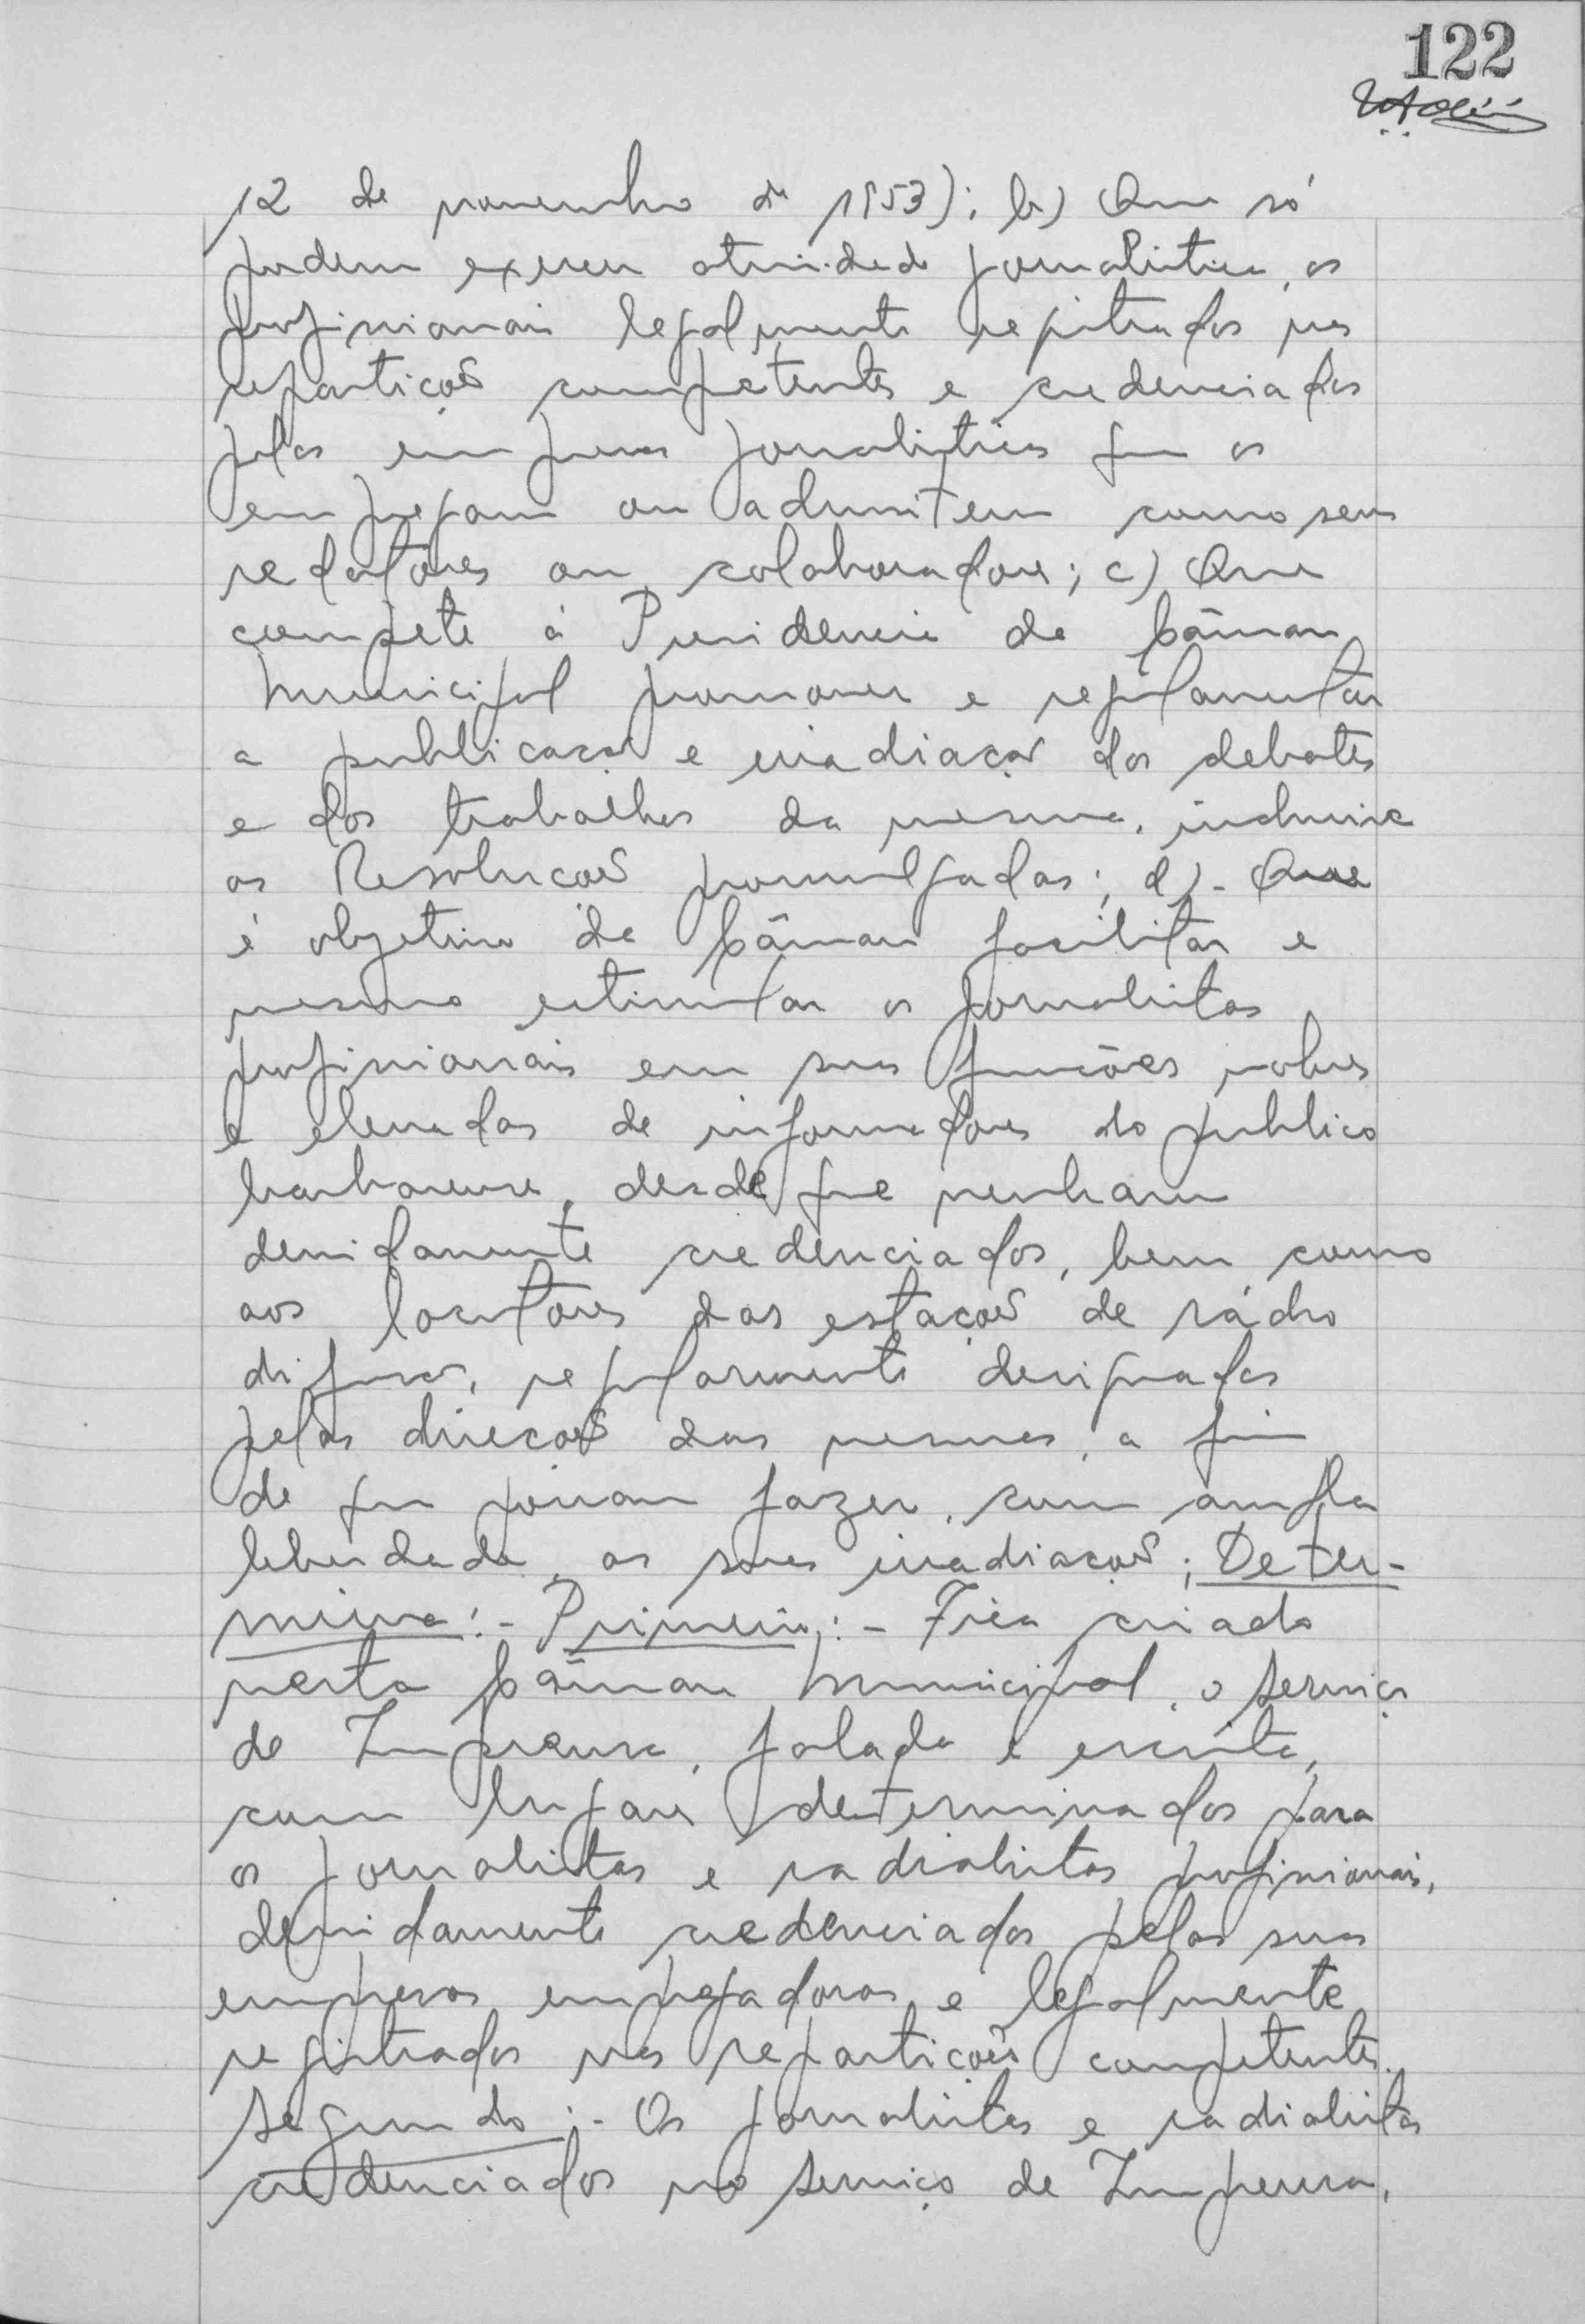 122
12 de novembro de 1953); b) Que só
podem exercer atividade jornalistica, os
profissionais legalmente registrados nas
repartições competentes e credenciados
pelas empresas jornalisticas que os
empregam ou admitem como seus
redatores ou colaboradores; c) Que
compete á Presidencia da Câmara
Municipal promover e regulamentar
a publicação e irradiação dos debates
e dos trabalhos da mesma, inclusive
as Resoluções promulgadas; d) - Que
é objetivo da Câmara facilitar e
mesmo estimular os jornalistas
profissionais em suas funções nobres
e elevadas de informadores do publico
barbarense, desde que venham
devidamente credenciados, bem como
aos locutores das estações de rádio
difusão, regularmente designados
pelas direções das mesmas, a fim
de que possam fazer, com ampla
liberdade, as suas irradiações; Deter-
mina:- Primeiro:- Fica criado
nesta Câmara Municipal, o serviço
de Imprensa, falada e escrita,
com lugares determinados para
os jornalistas e radialistas profissionais,
devidamente credenciados pelas suas
empresas empregadoras e legalmente
registrados nas repartições competentes.
Segundo:- Os jornalistas e radialistas
credenciados no serviço de Imprensa,